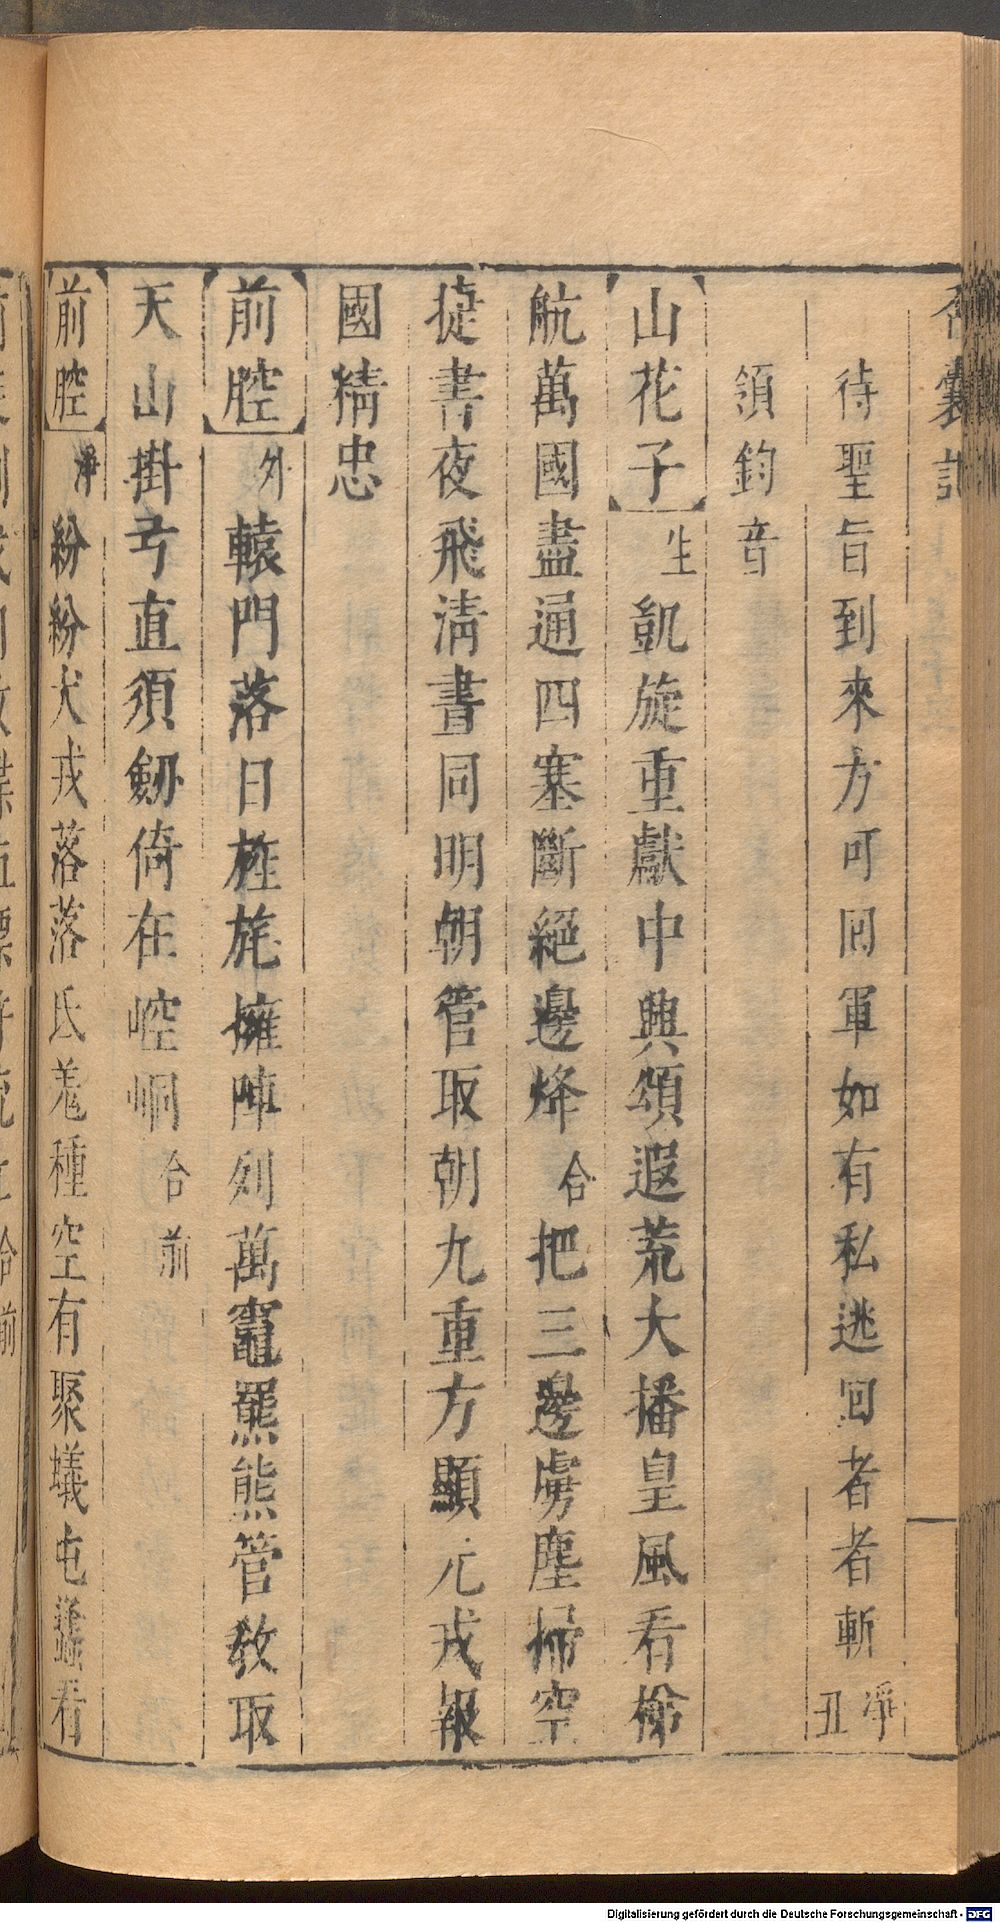 香囊記
待聖旨到來方可回軍如有私逃回者者斬淨丑
領鈞音
山花子生凱旋重獻中興頌遐荒大播皇風看梯
航萬國盡通四塞斷絕邊烽合把三邊虜塵掃空
捷書夜飛淸晝同明朝管取朝九重方顯元戎報
國精忠
前腔外轅門落日旌旄擁陣列萬竈羆熊管教取
天山掛弓直須劒倚在崆峒合前
前腔淨紛紛犬戎落落氐羌種空有聚蟻屯蜂看
Digitalisierung gefördert durch die Deutsche Forschungsgemeinschaft - DFG